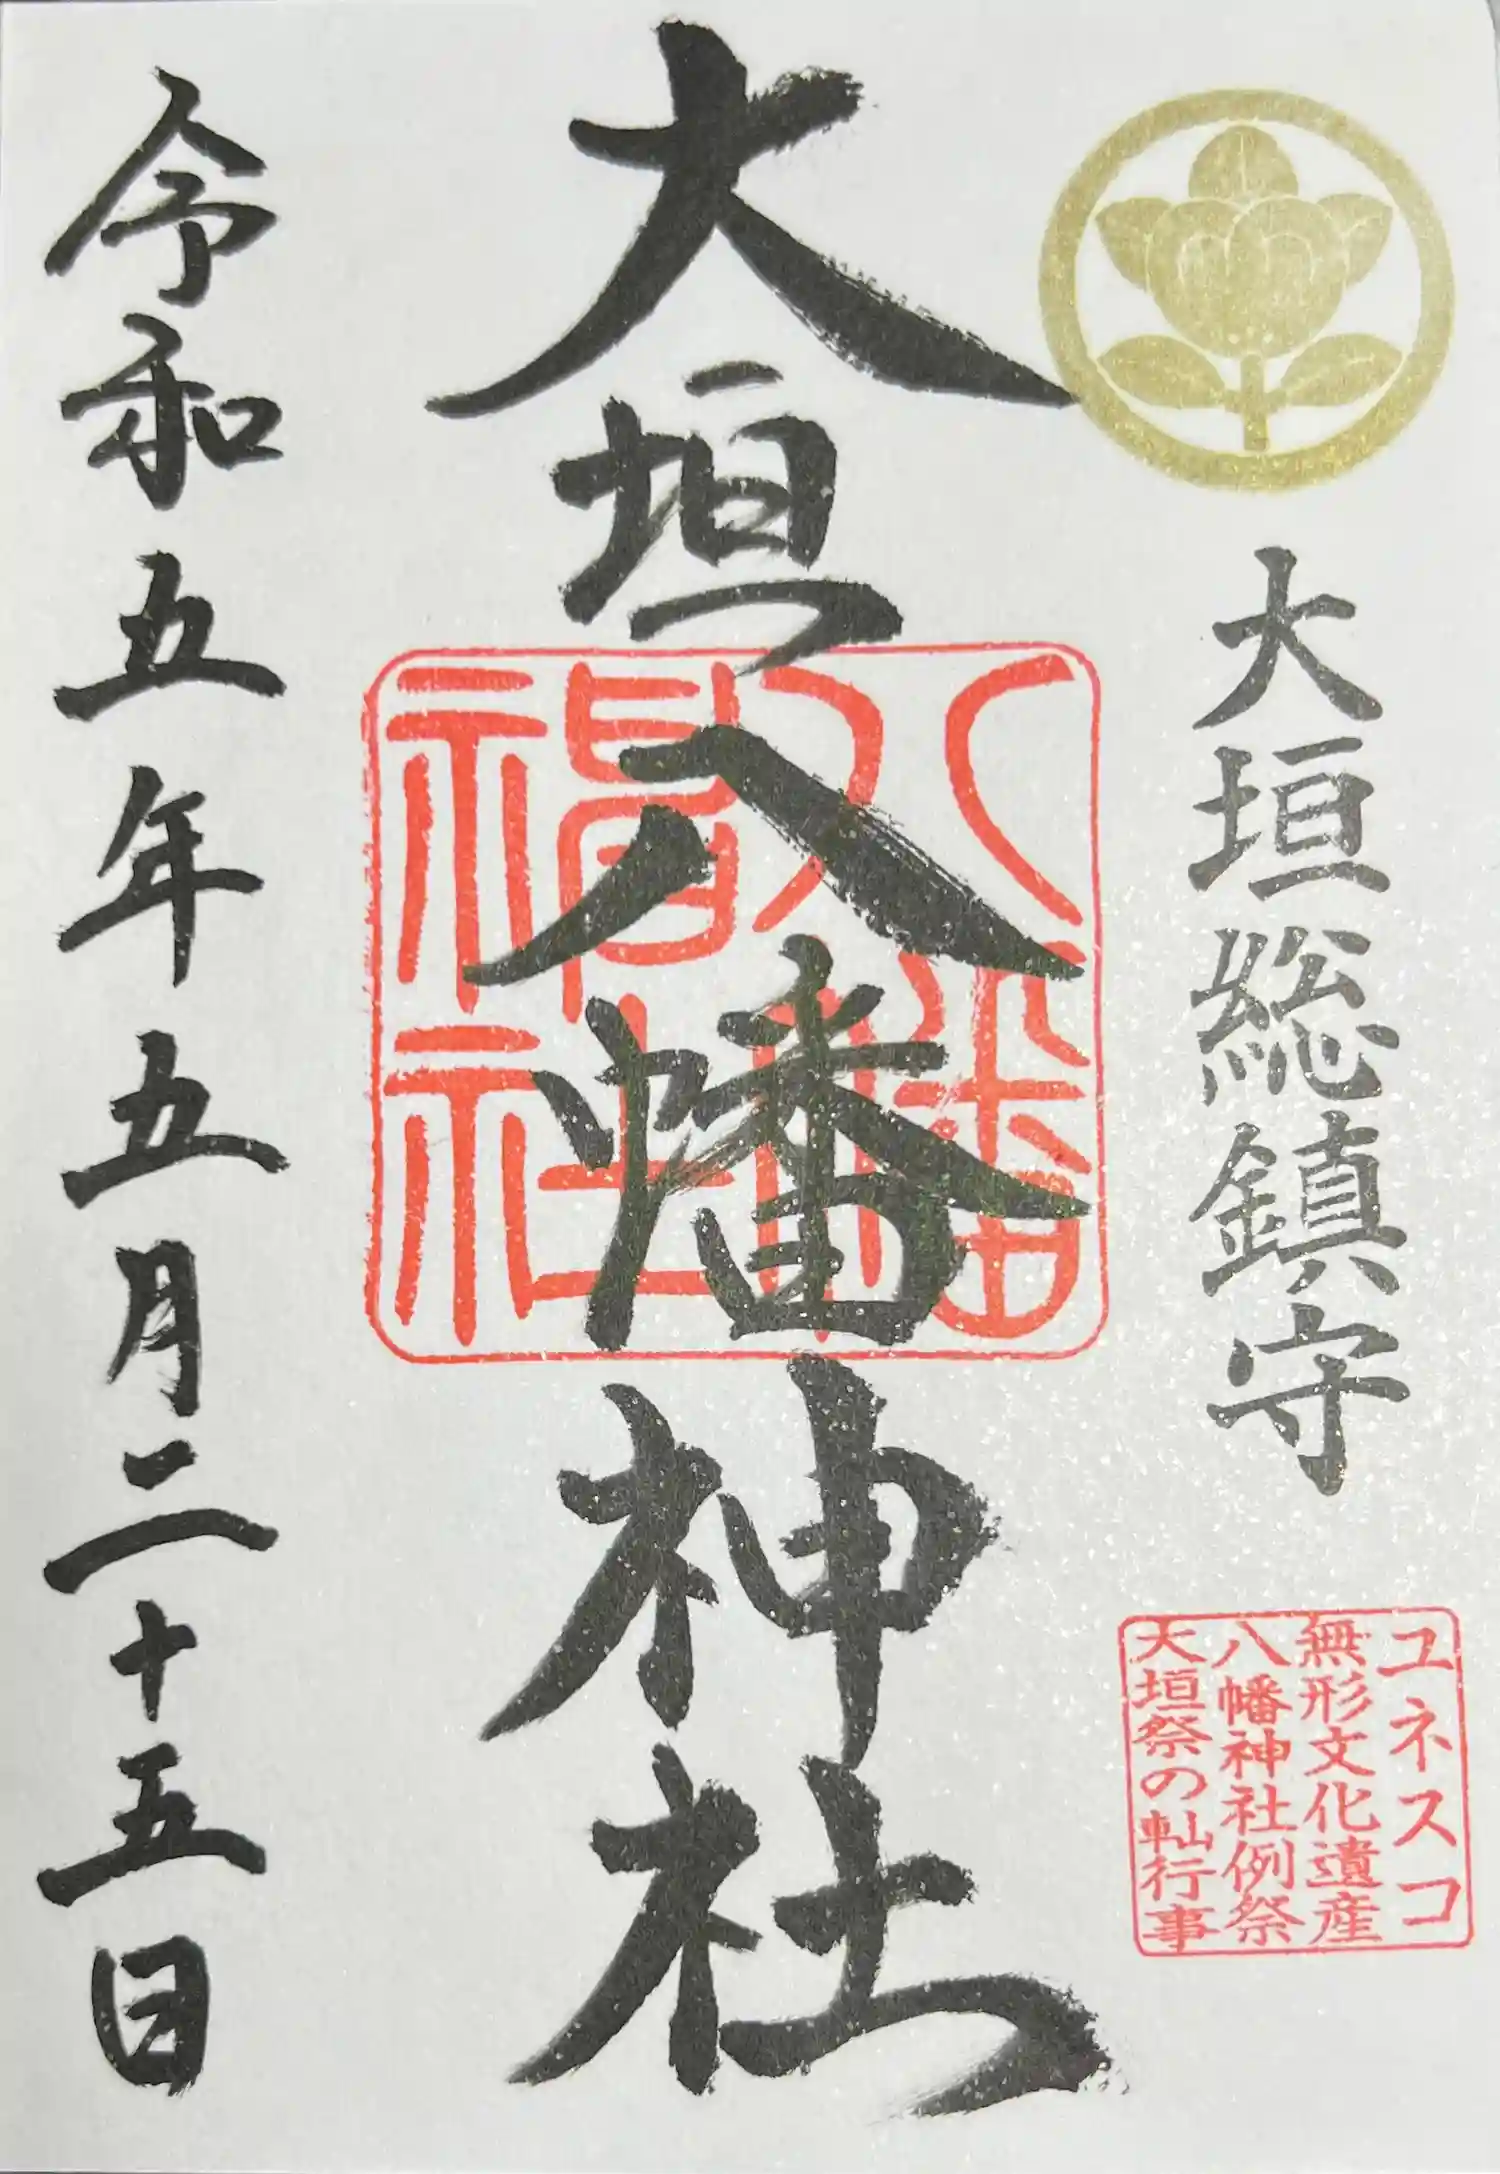 大垣総鎮守
ユネスコ
無形文化遺産
八幡神社例祭
大垣祭の軕行事
大垣八幡神社
八幡神社
令和五年五月二十五日